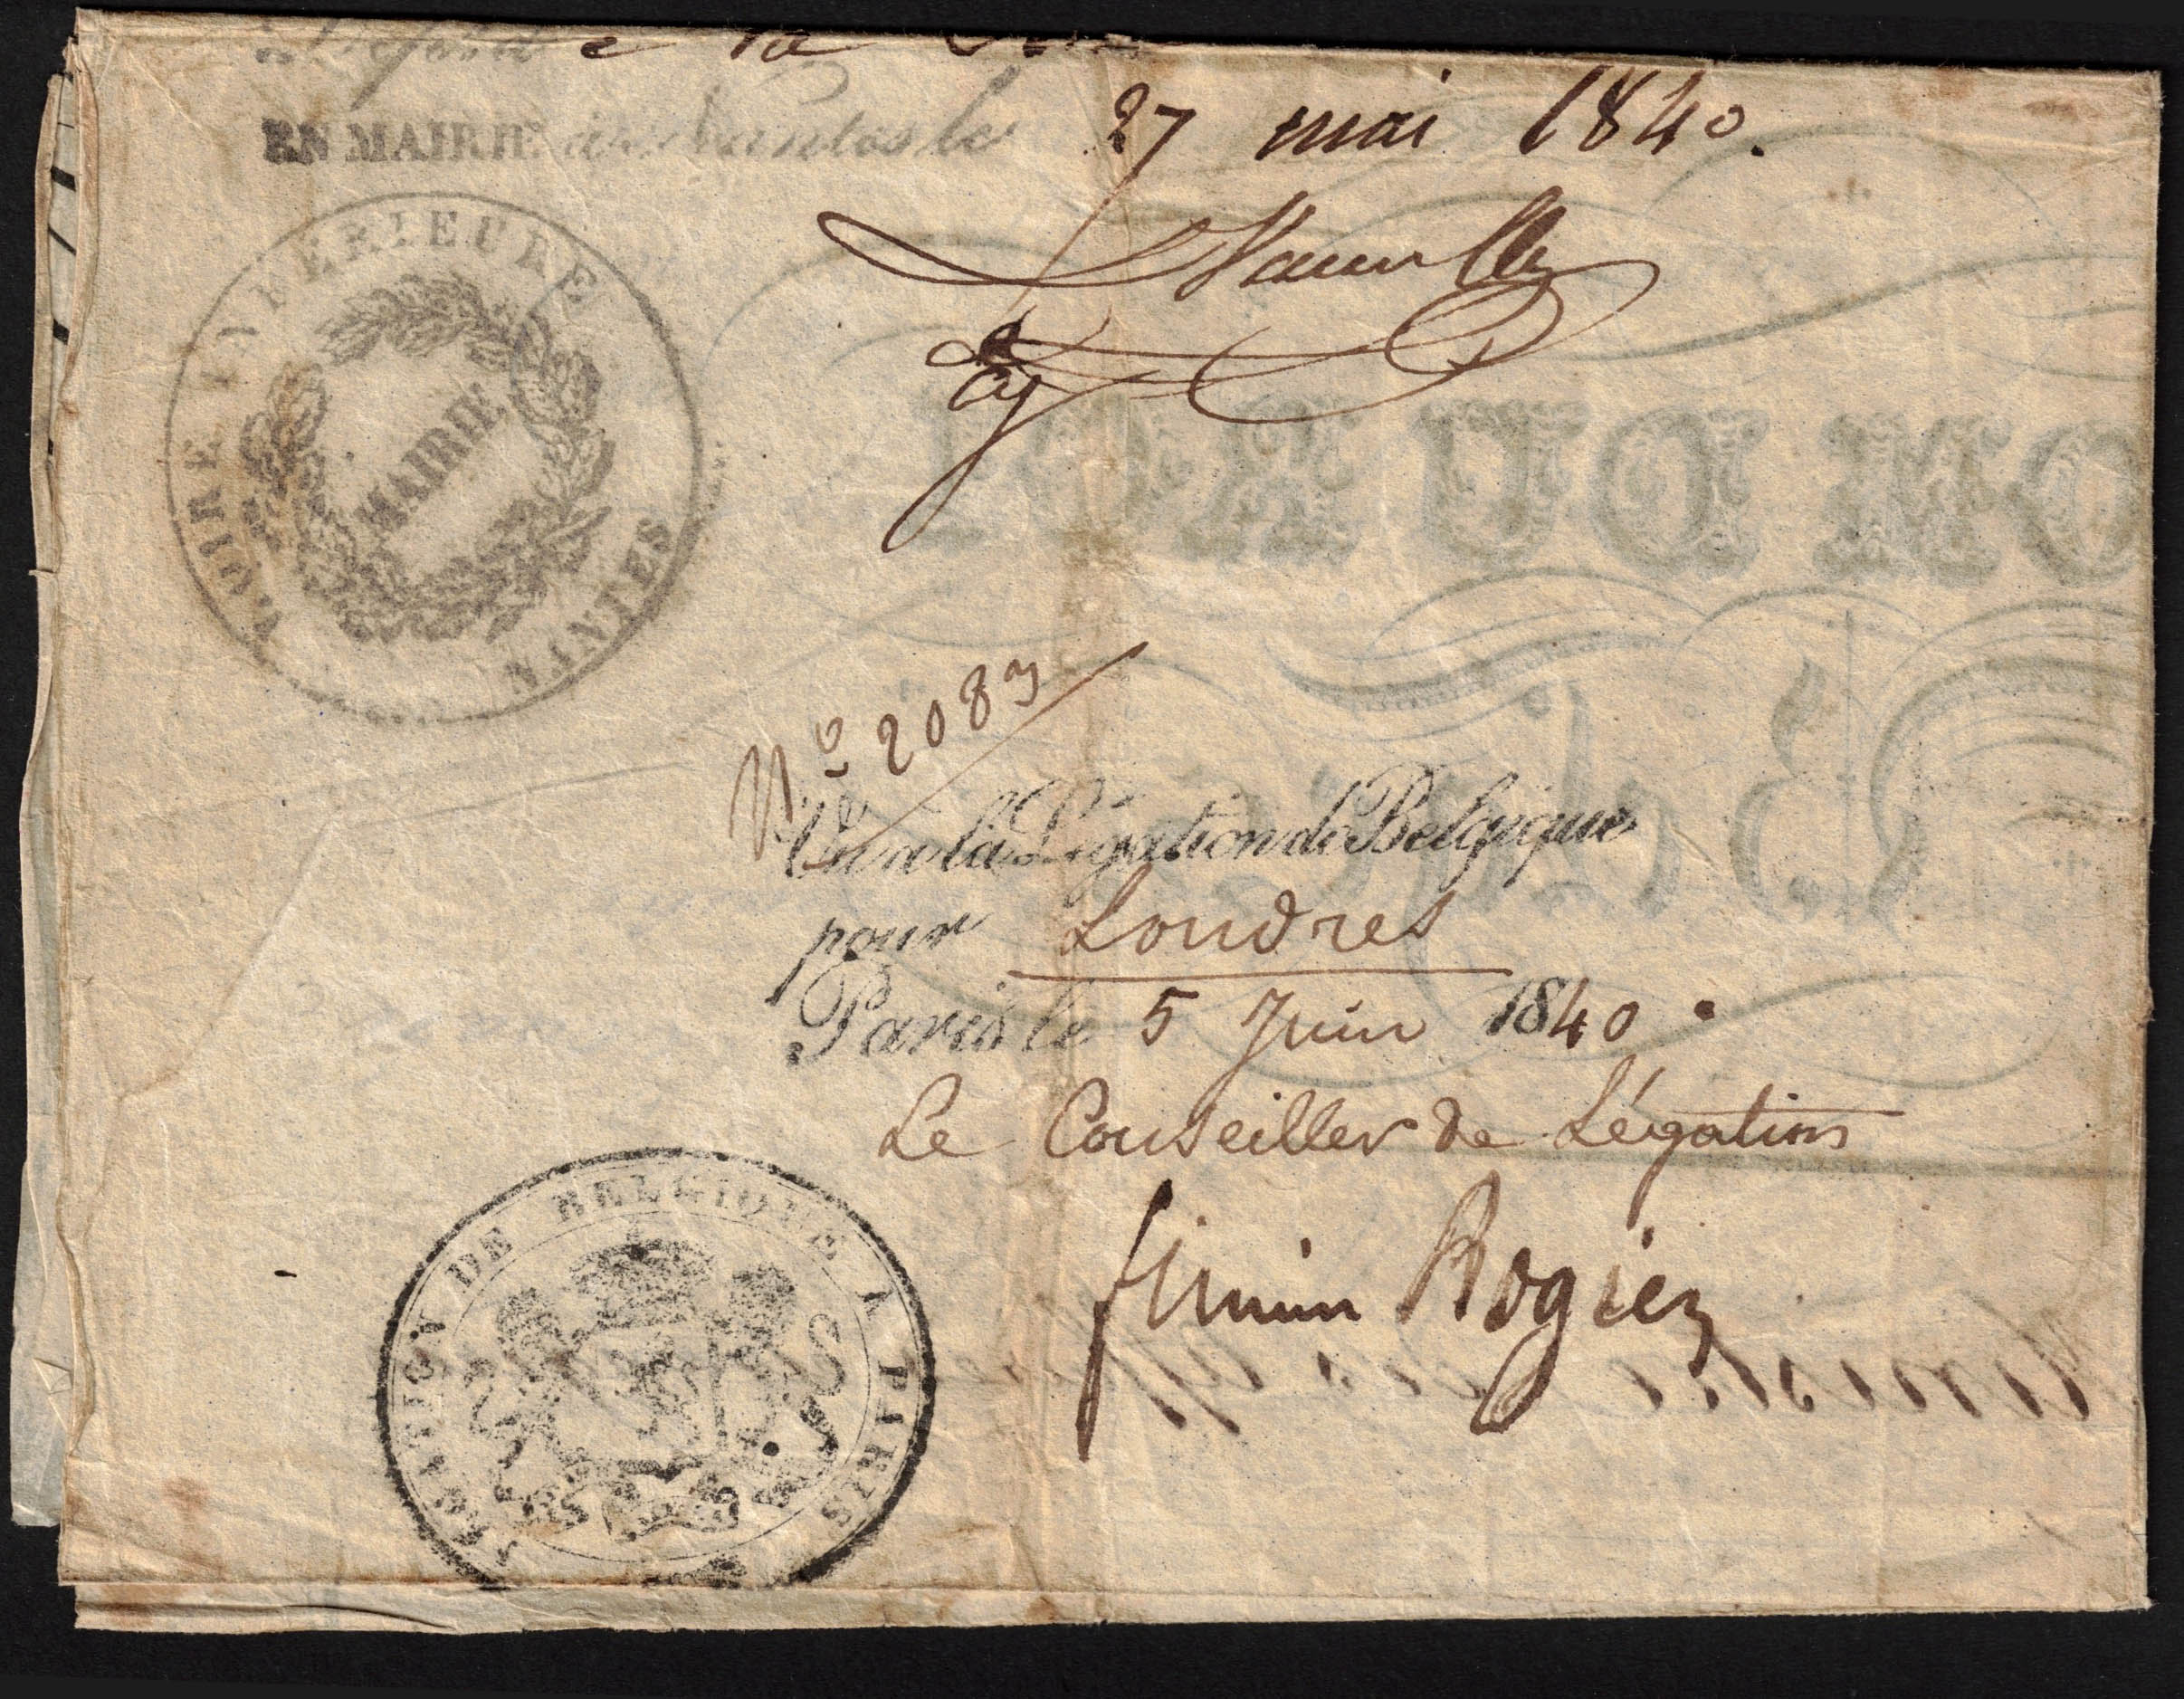 EN MAIRIE à Nantes le 27 mai 1840.
LOIRE INFERIEURE
MAIRIE
NANTES
Nº 2083
Vu à la Légation de Belgique
pour Londres
Paris le 5 Juin 1840.
Le Conseiller de Légation
firmin Rogier
LEGATION DE BELGIQUE A PARIS